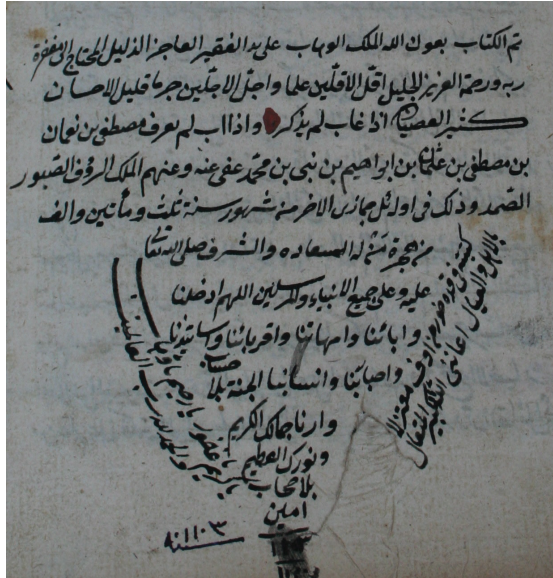 تم الكتاب بعون الله الملك الوهاب على يد الفقير العاجز الذليل المحتاج الى مغفرة
ربه ورحمة العزيز الجليل اقل الاقلين علما واجل الاجلين جرما قليل الاحسان
كثير العصيان اذا غاب لم يذكر واذا اب لم يعرف مصطفى بن نعمان
بن مصطفى بن عثمان بن ابراهيم بن نبى بن محمد عفى عنه وعنهم الملك الرؤف الصبور
الصمد وذلك فى اوائل جمازى الاخر من شهور سنة ثلث ومأتين والف
من هجرة من له السعاده والشرف صلى الله تعا
عليه وعلى جميع الانبياء والمرسلين اللهم ادخلنا
و ابائنا وامهاتنا واقربائنا واساتيذنا
واحبائنا وانسابنا الجنة بلا حساب
وارنا جمالك الكريم
ونورك العظيم
بلا حجاب
امين
يا كريم يا غفور يا رحيم
والحمد لله رب العالمين
بالاهل والعيال اعاننى الملك الكبير المتعال